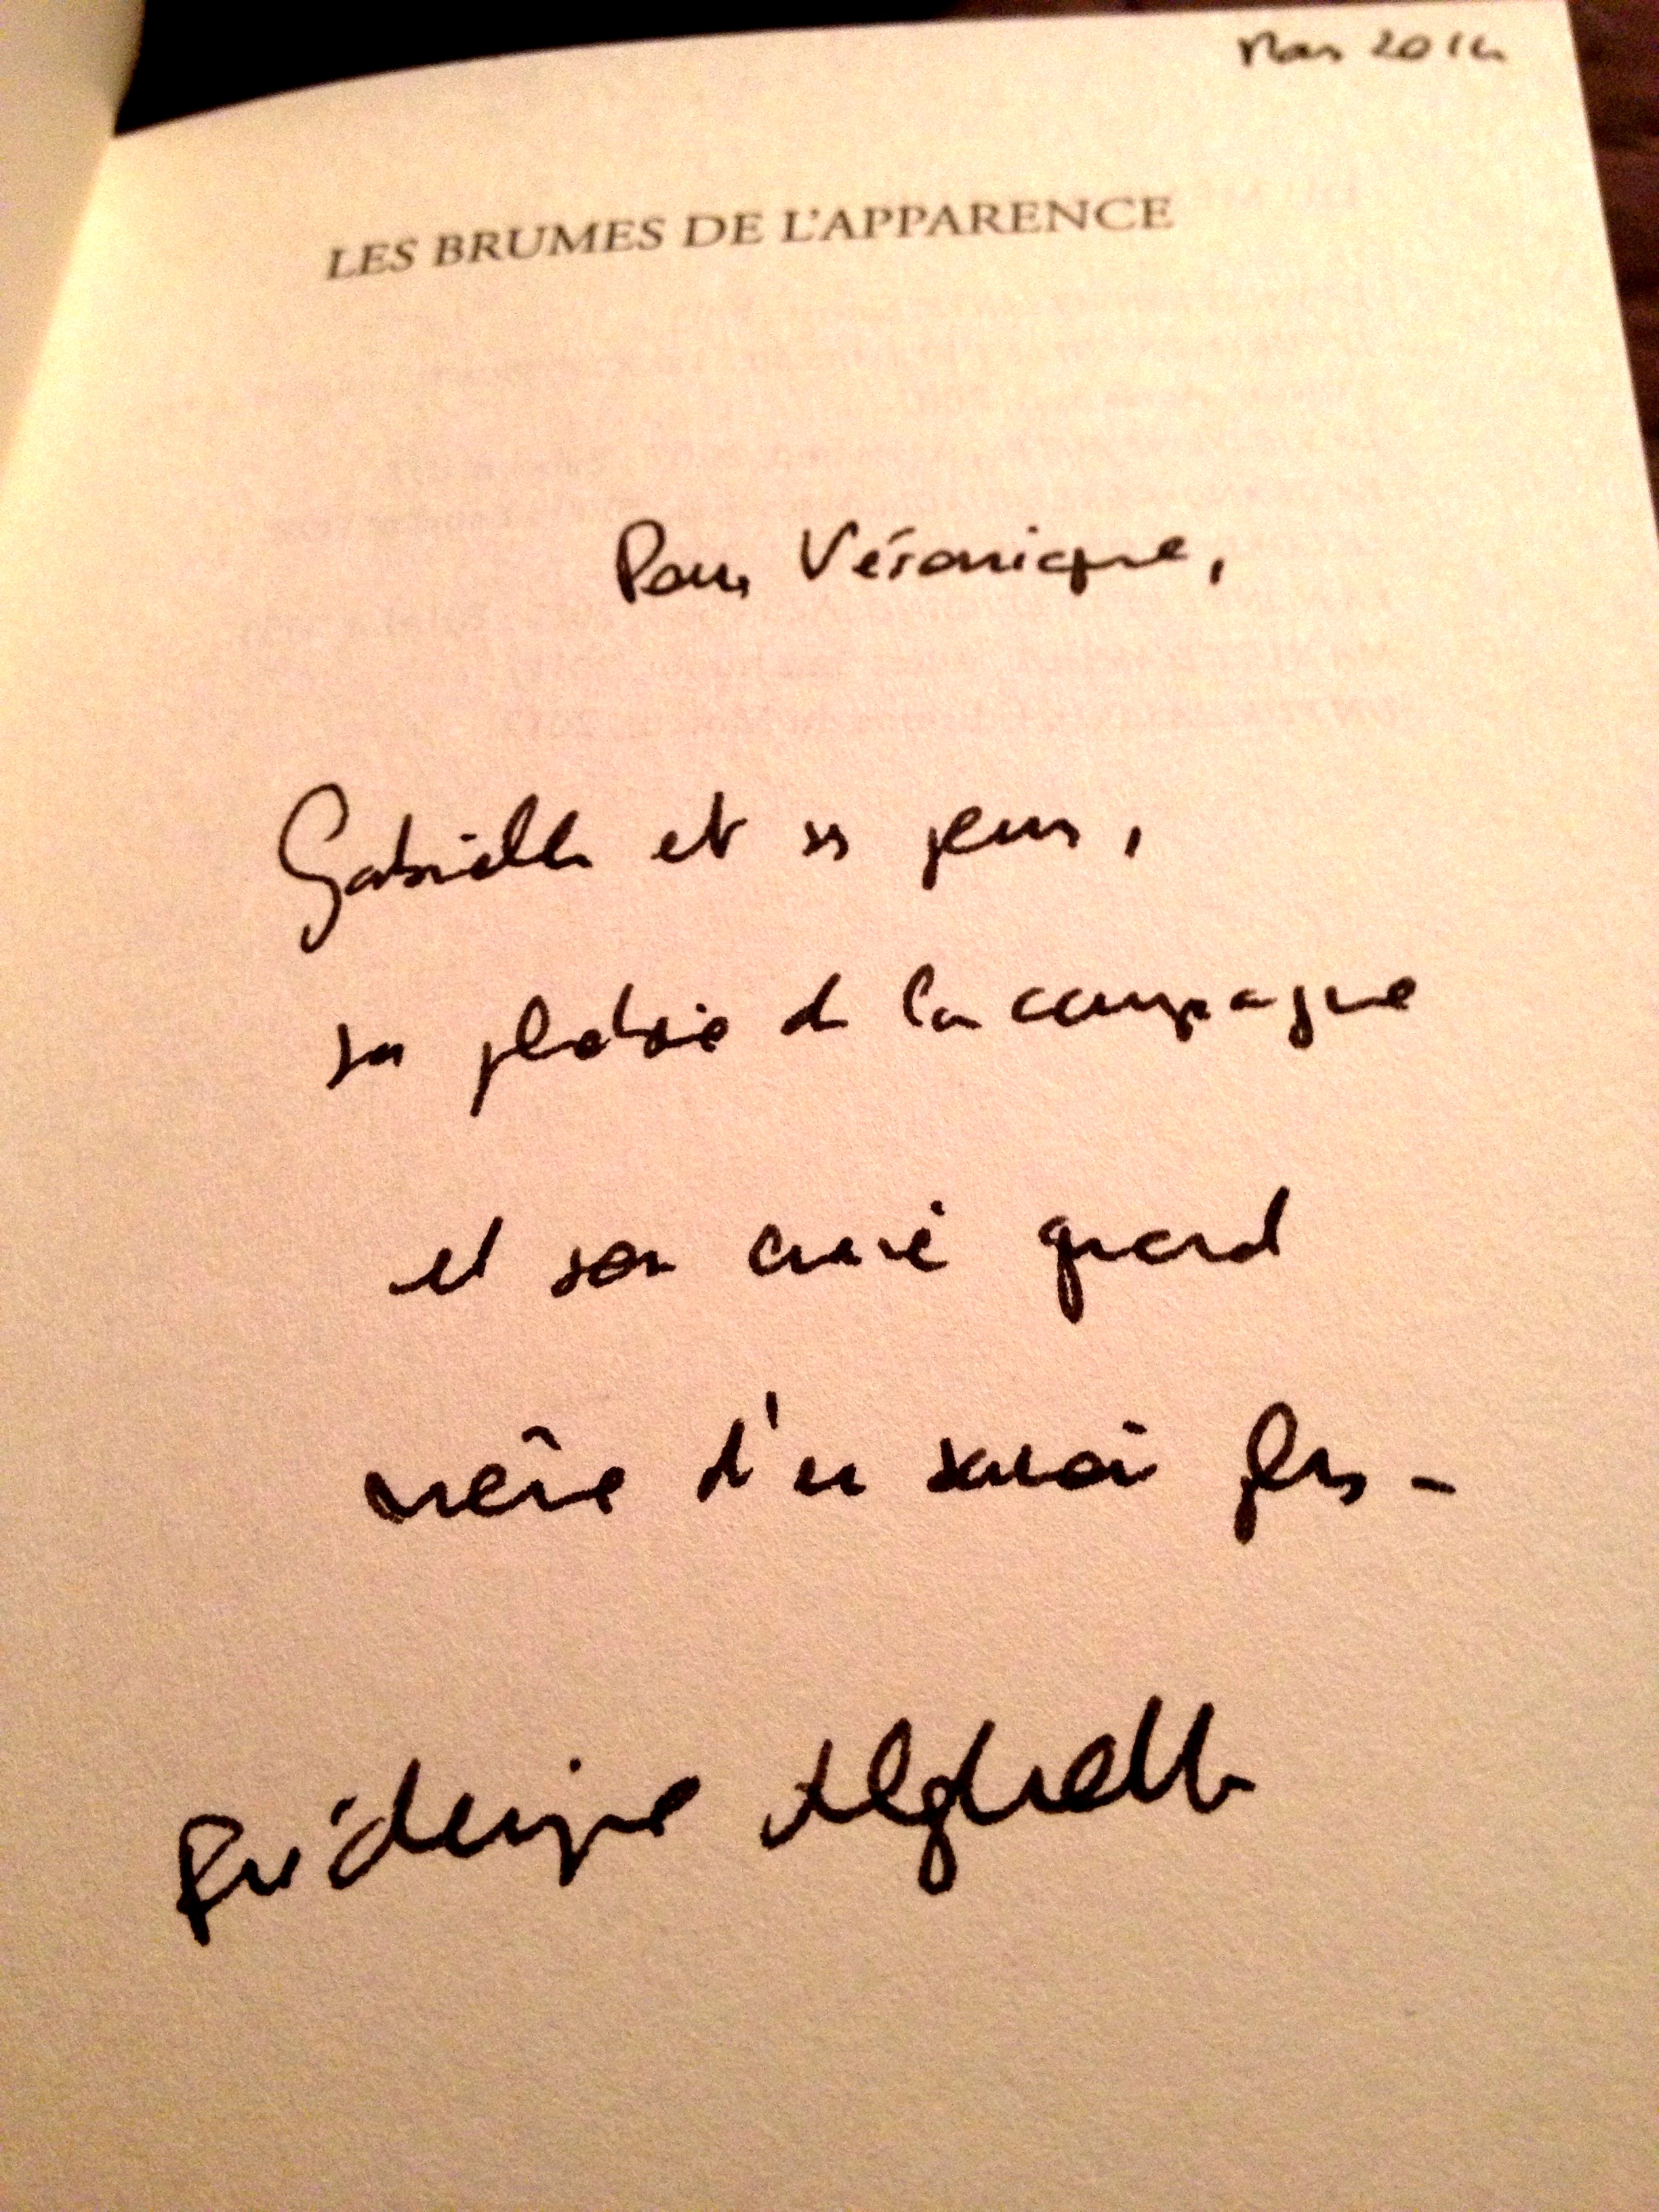 Mars 2014
LES BRUMES DE L'APPARENCE
Pour Véronique,
Gabrielle et ses peurs,
sa phobie de la campagne
et son envie quand
même d'en savoir plus -
Frédérique